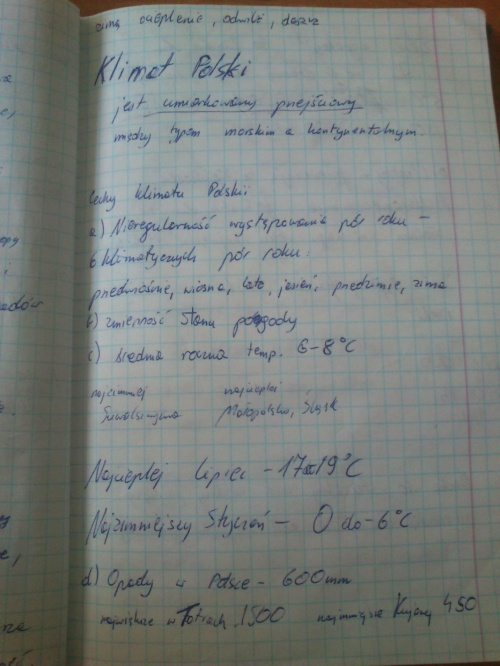 zimą ocieplenie, odwilż, deszcz
Klimat Polski
jest umiarkowany przejściowy
między typem morskim a kontynentalnym.
Cechy klimatu Polski:
a) Nieregularność występowania pór roku -
6 klimatycznych pór roku:
przedwiośnie, wiosna, lato, jesień, przedzimie, zima
b) zmienność stanu pogody
c) średnia roczna temp. 6-8°C
najzimniej najcieplej
Suwalszczyzna Małopolska, Śląsk
Najcieplej lipiec - 17 19°C
Najzimniejszy Styczeń - 0 do -6°C
d) Opady w Polsce - 600mm
największe w Tatrach 1500 najmniejsze Kujawy 450